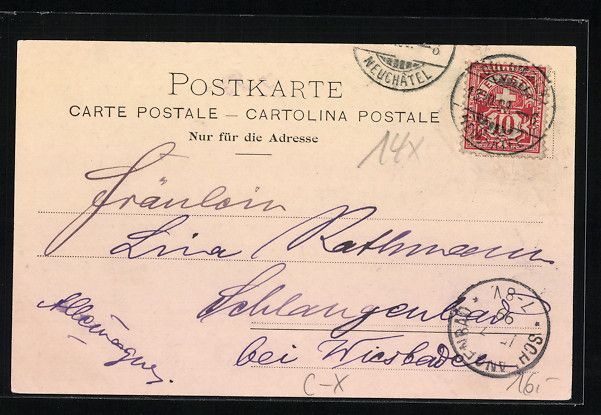 NEUCHÂTEL
POSTKARTE
CARTE POSTALE — CARTOLINA POSTALE
Nur für die Adresse
10
14X
Fräulein
Lina Rathmann
Schlangenbad
bei Wiesbaden
Allemagne.
C-X
16,-